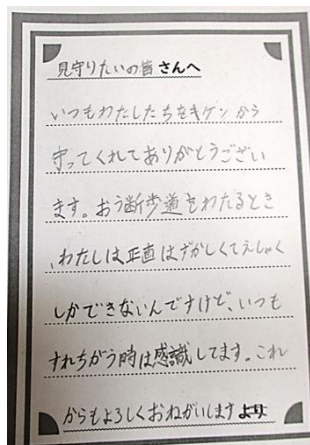 見守りたいの皆さんへ
いつもわたしたちをキケンから
守ってくれてありがとうござい
ます。おう断歩道をわたるとき
、わたしは正直はずかしくてえしゃく
しかできないんですけど、いつも
すれちがう時は感識してます。これ
からもよろしくおねがいします より